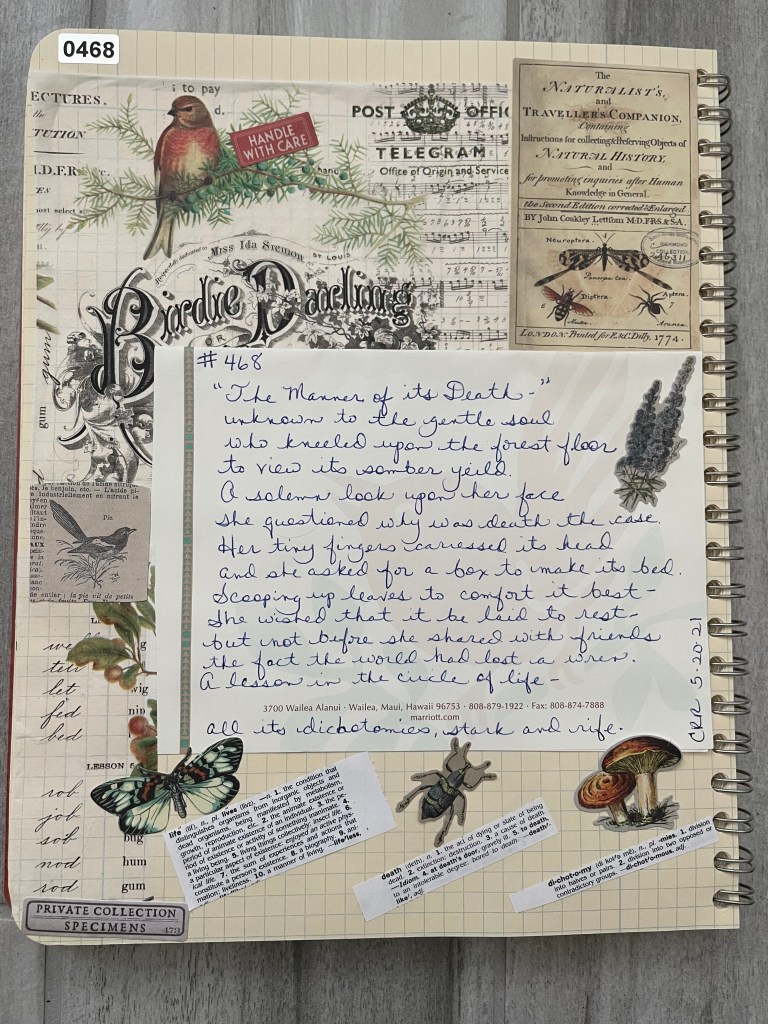 0468
ECTURES.
the
TUTION
M.D.F.R
ES
most select
i to pay
d.
HANDLE
WITH CARE
hand
POST OFFIC
TELEGRAM
Office of Origin and Service
Respectfully dedicated to Miss Ida Siemon ST LOUIS
Birdie Darling
OR
gum
gum
The
NATURALIST'S,
and
TRAVELLER'S COMPANION,
Containing
Instructions for collecting & Preserving Objects of
NATURAL HISTORY,
and
for promoting inquiries after Human
Knowledge in General.
the Second Edition corrected & Enlarged
BY John Coakley Lettsom M.D.F.R.S.& S.A.
Neuroptera.
Panorpa coa.
Diptera.
Aptera.
Aranea.
LONDON Printed for E.&C. Dilly. 1774.
#468
"The Manner of its Death-"
unknown to the gentle soul
who kneeled upon the forest floor
to view its somber yeild.
A solemn look upon her face
she questioned why was death the case.
Her tiny fingers carressed its head
and she asked for a box to make its bed.
Scooping up leaves to comfort it best-
She wished that it be laid to rest-
but not before she shared with friends
the fact the world had lost a wren.
A lesson in the circle of life-
3700 Wailea Alanui · Wailea, Maui, Hawaii 96753 · 808-879-1922 · Fax: 808-874-7888
marriott.com
all its dichotomies, stark and rife.
CRR 5.20.21
Pie.
la pie vit de petits
let
fed
bed
wig
nip
LESSON
rob
job
sob
nod
rod
bug
hum
gum
life (līf), n., pl. lives (līvz). —n. 1. the condition that
distinguishes organisms from inorganic objects and
dead organisms, being manifested by metabolism,
growth, reproduction, etc. 2. the animate existence or
period of animate existence of an individual. 3. the pe-
riod of existence or activity of something inanimate. 4.
a living being. 5. living things collectively: animal life. 6.
a particular aspect of existence: enjoyed an active phys-
ical life. 7. the sum of experiences and actions that
constitute a person's existence. 8. a biography. 9. ani-
mation; liveliness. 10. a manner of living. —life'less,
adj.
death (deth), n. 1. the act of dying or state of being
dead. 2. extinction; destruction. 3. a cause of death.
—Idiom. 4. at death's door, gravely ill. 5. to death,
to an intolerable degree: bored to death. —death'-
like', adj.
di·chot·o·my (dī kot'ə mē), n., pl. -mies. 1. division
into halves or pairs. 2. division into two opposed or
contradictory groups. —di·chot'o·mous, adj.
PRIVATE COLLECTION
SPECIMENS